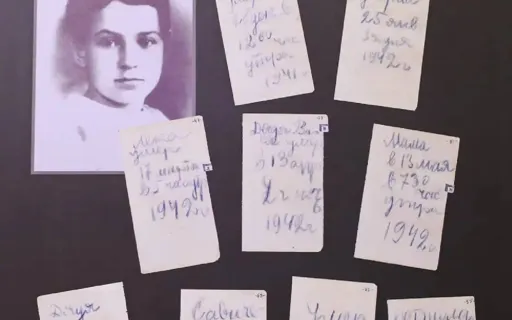 дек в
12 00 час
утра
1941 г
25 янв
3 ч дня
1942 г
Лека
умер
17 марта
в 5 часутр
1942 г
Дядя Ва
ся умер
в 13 апр
2 ч ночь
1942 г
Мама
в 13 мая
в 7 30
час
утра
1942 г
Дядя
Савич
Умер